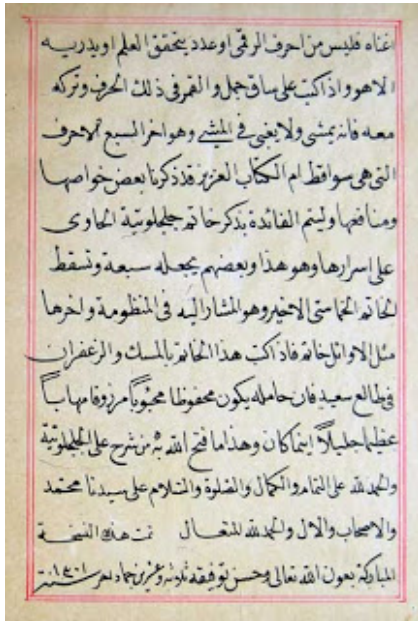 اغناه فليس من احرف الرقى او عدد يتحقق العلم او يدريه
الا هو واذا كتب على ساق جمل والقمر في ذلك الحرف وتركه
معه فانه يمشى ولا يغبى في المشي وهو اخر السبع الاحرف
التى هى سواقط ام الكتاب العزيز قد ذكرنا بعض خواصها
ومنافعها وليتم الفائدة بذكر خاتم جلجلوتية الحاوى
على اسرارها وهو هذا وبعضهم يجعله سبعة وتسقط
الخاتم الخماسى الاخير وهو المشار اليه فى المنظومة واخرها
مثل الاوائل خاتم فاذا كتب هذا الخاتم بالمسك والزعفران
فى طالع سعيد فان حامله يكون محفوظا محبوبا مرزوقا مهابا
عظيما جليلاً اينما كان وهذا ما فتح الله به من شرح على الجلجلوتية
والحمد لله على التمام والكمال والصلوة والسلام على سيدنا محمد
والاصحاب والال والحمد لله المتعال تمت هذه النسخة
المباركة بعون الله تعالى وحسن توفيقه وعشرين جماد سنة ١٣٠١